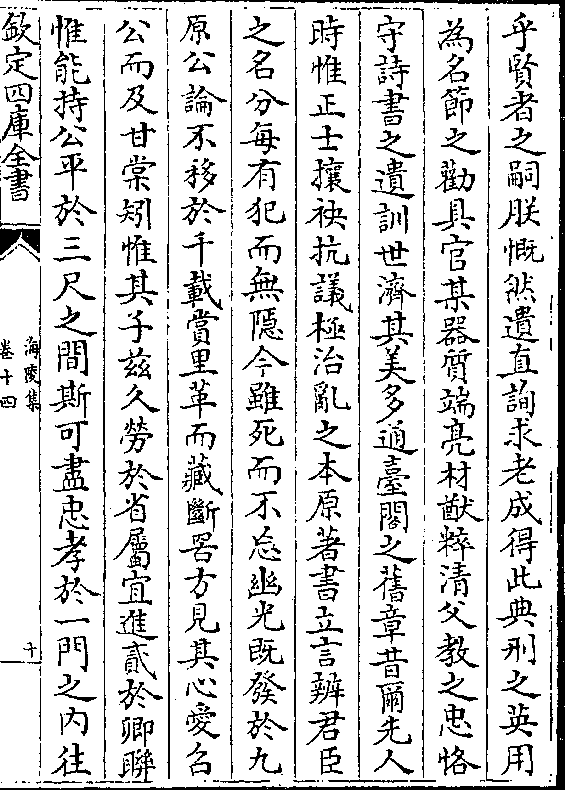 乎賢者之嗣朕慨然遺直詢求老成得此典刑之英用
為名節之勸具官某器質端亮材猷粹清父教之忠恪
守詩書之遺訓世濟其美多通臺閣之舊章昔爾先人
時惟正士攘袂抗議極治亂之本原著書立言辨君臣
之名分每有犯而無隱今雖死而不忘幽光既發於九
原公論不移於千載賞里革而藏斷罟方見其心愛召
公而及甘棠矧惟其子兹久勞於省屬宜進貳於卿聯
惟能持公平於三尺之間斯可盡忠孝於一門之内往
欽定四庫全書
海陵集
卷十四
十